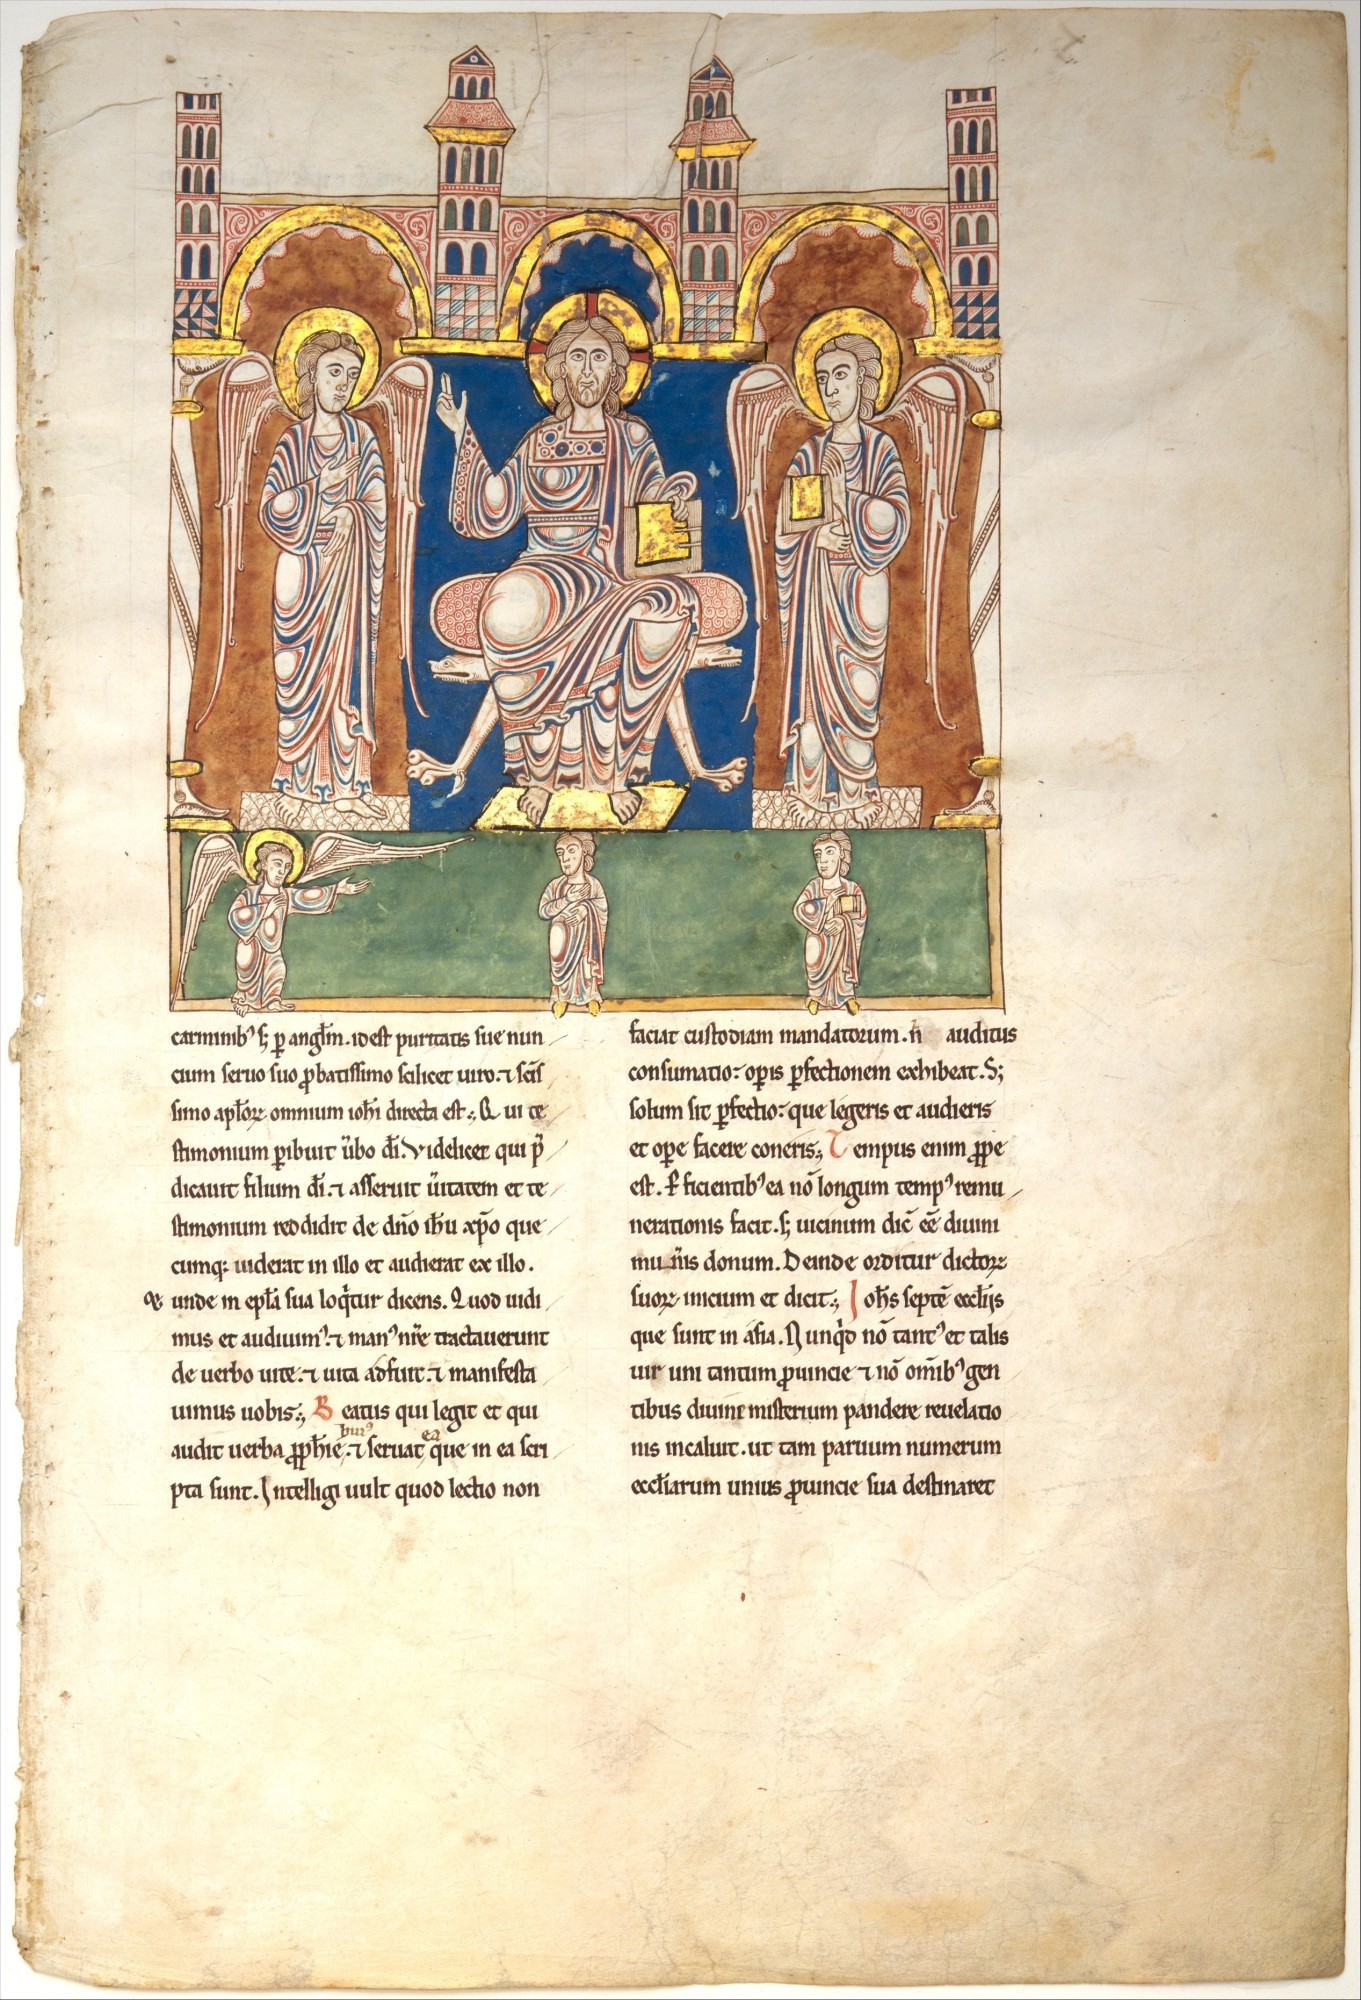 carminib᾽ ſꝫ ꝑ angl̄m. id est puritatis sue nun
cium seruo suo ꝓbatissimo scilicet uiro. ⁊ sc̄is
simo apl̄oꝝ omnium ioh̄i directa est. Qui te
stimonium ꝑibuit ūbo dī. Videlicet qui p̄
dicauit filium dī. ⁊ asseruit ūitatem et te
stimonium reddidit de dn̄o ih̄u xp̄o que
cumqꝫ uiderat in illo et audierat ex illo.
unde in epl̄a sua loq̄tur dicens. Quod uidi
mus et audiuim᾽. ⁊ man᾽ nr̄e tractauerunt
de uerbo uite. ⁊ uita adfuit. ⁊ manifesta
uimus uobis. Beatus qui legit et qui
audit uerba ꝓph̄ie hui᾽. ⁊ seruat ea que in ea scri
pta sunt. Intelligi uult quod lectio non
faciat custodiam mandatorum. n̄ auditus
consumatio: opis ꝑfectionem exhibeat. Sꝫ
solum sit ꝑfectio: que legeris et audieris
et ope facere coneris. Tempus enim ꝓpe
est. ꝑficientib᾽ ea nō longum temp᾽ remu
nerationis facit. ſꝫ uicinum dic̄ ee̅ diuini
mun̄is donum. Deinde orditur dictoꝝ
suoꝝ inicium et dicit. Joh̄s septē eccl̄iis
que sunt in asia. Nunqd̄ nō tant᾽ et talis
uir uni tantum ꝓuincie ⁊ nō om̄ib᾽ gen
tibus diuine misterium pandere reuelatio
nis incaluit. ut tam paruum numerum
eccl̄iarum unius ꝓuincie sua destinaret